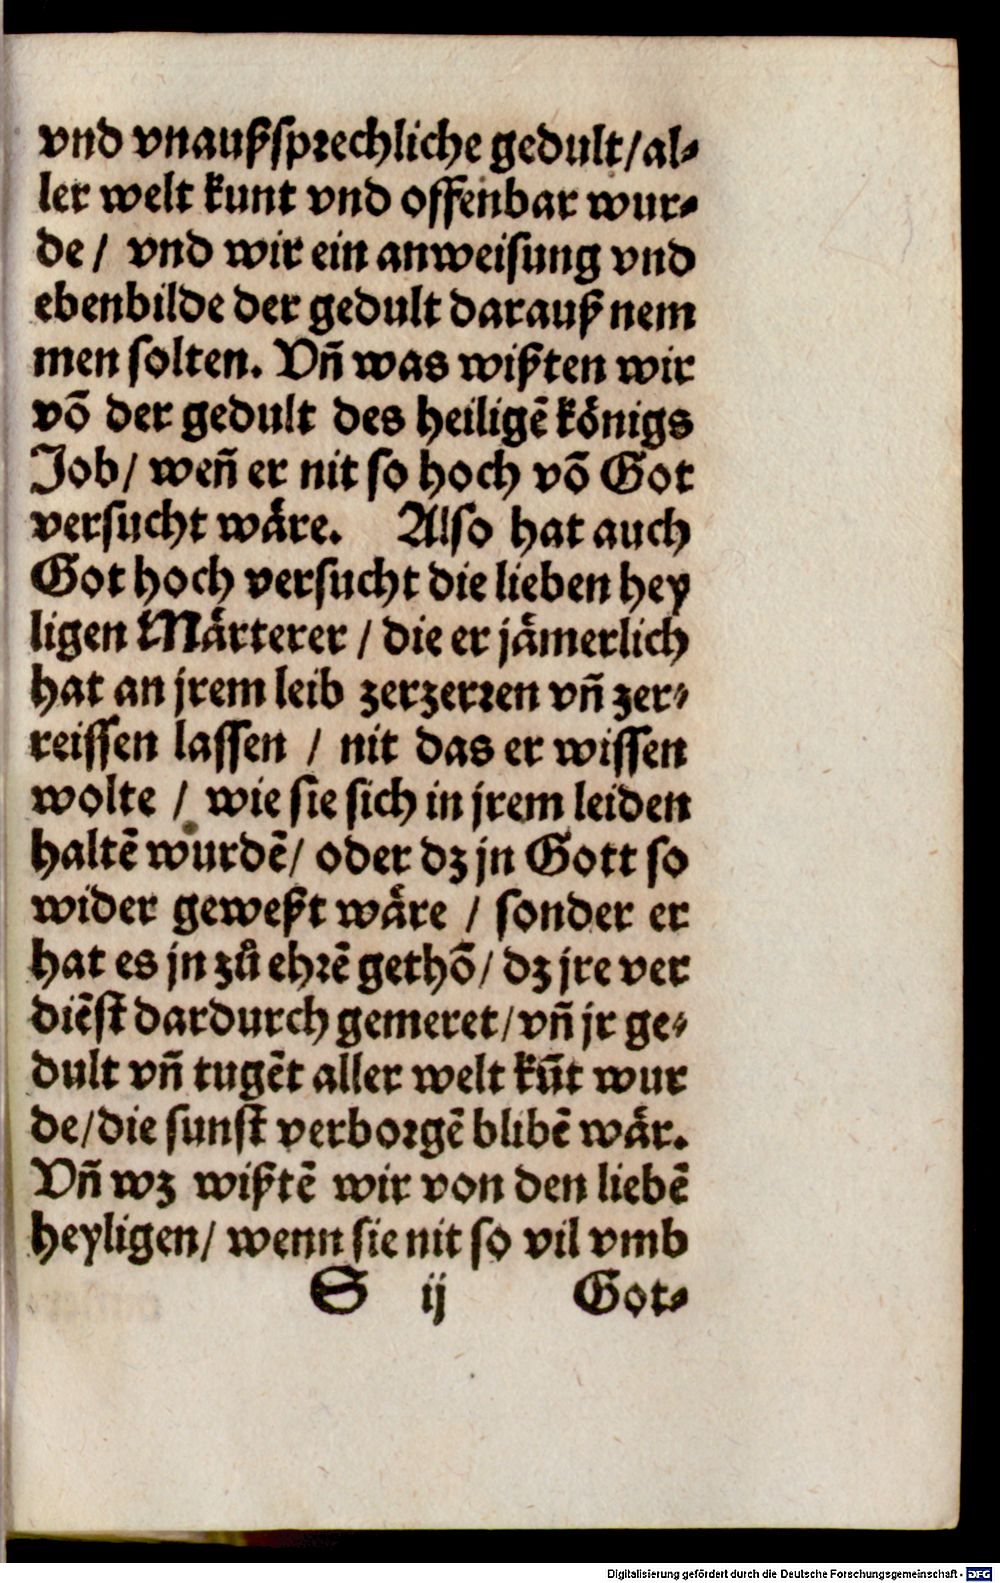 vnd vnaußsprechliche gedult/al⸗
ler welt kunt vnd offenbar wur⸗
de/ vnd wir ein anweisung vnd
ebenbilde der gedult darauß nem
men solten. Vñ was wißten wir
võ der gedult des heiligẽ königs
Job/ weñ er nit so hoch võ Got
versucht wäre. Also hat auch
Got hoch versucht die lieben hey
ligen Märterer / die er jämerlich
hat an jrem leib zerzerren vñ zer⸗
reissen lassen / nit das er wissen
wolte / wie sie sich in jrem leiden
haltẽ wurdẽ/ oder dz jn Gott so
wider geweßt wäre / sonder er
hat es jn zů ehrẽ gethõ/ dz jre ver
diẽst dardurch gemeret/vñ jr ge⸗
dult vñ tugẽt aller welt kũt wur
de/die sunst verborgẽ blibẽ wär.
Vñ wz wißtẽ wir von den liebẽ
heyligen/ wenn sie nit so vil vmb
S ij Got⸗
Digitalisierung gefördert durch die Deutsche Forschungsgemeinschaft - DFG